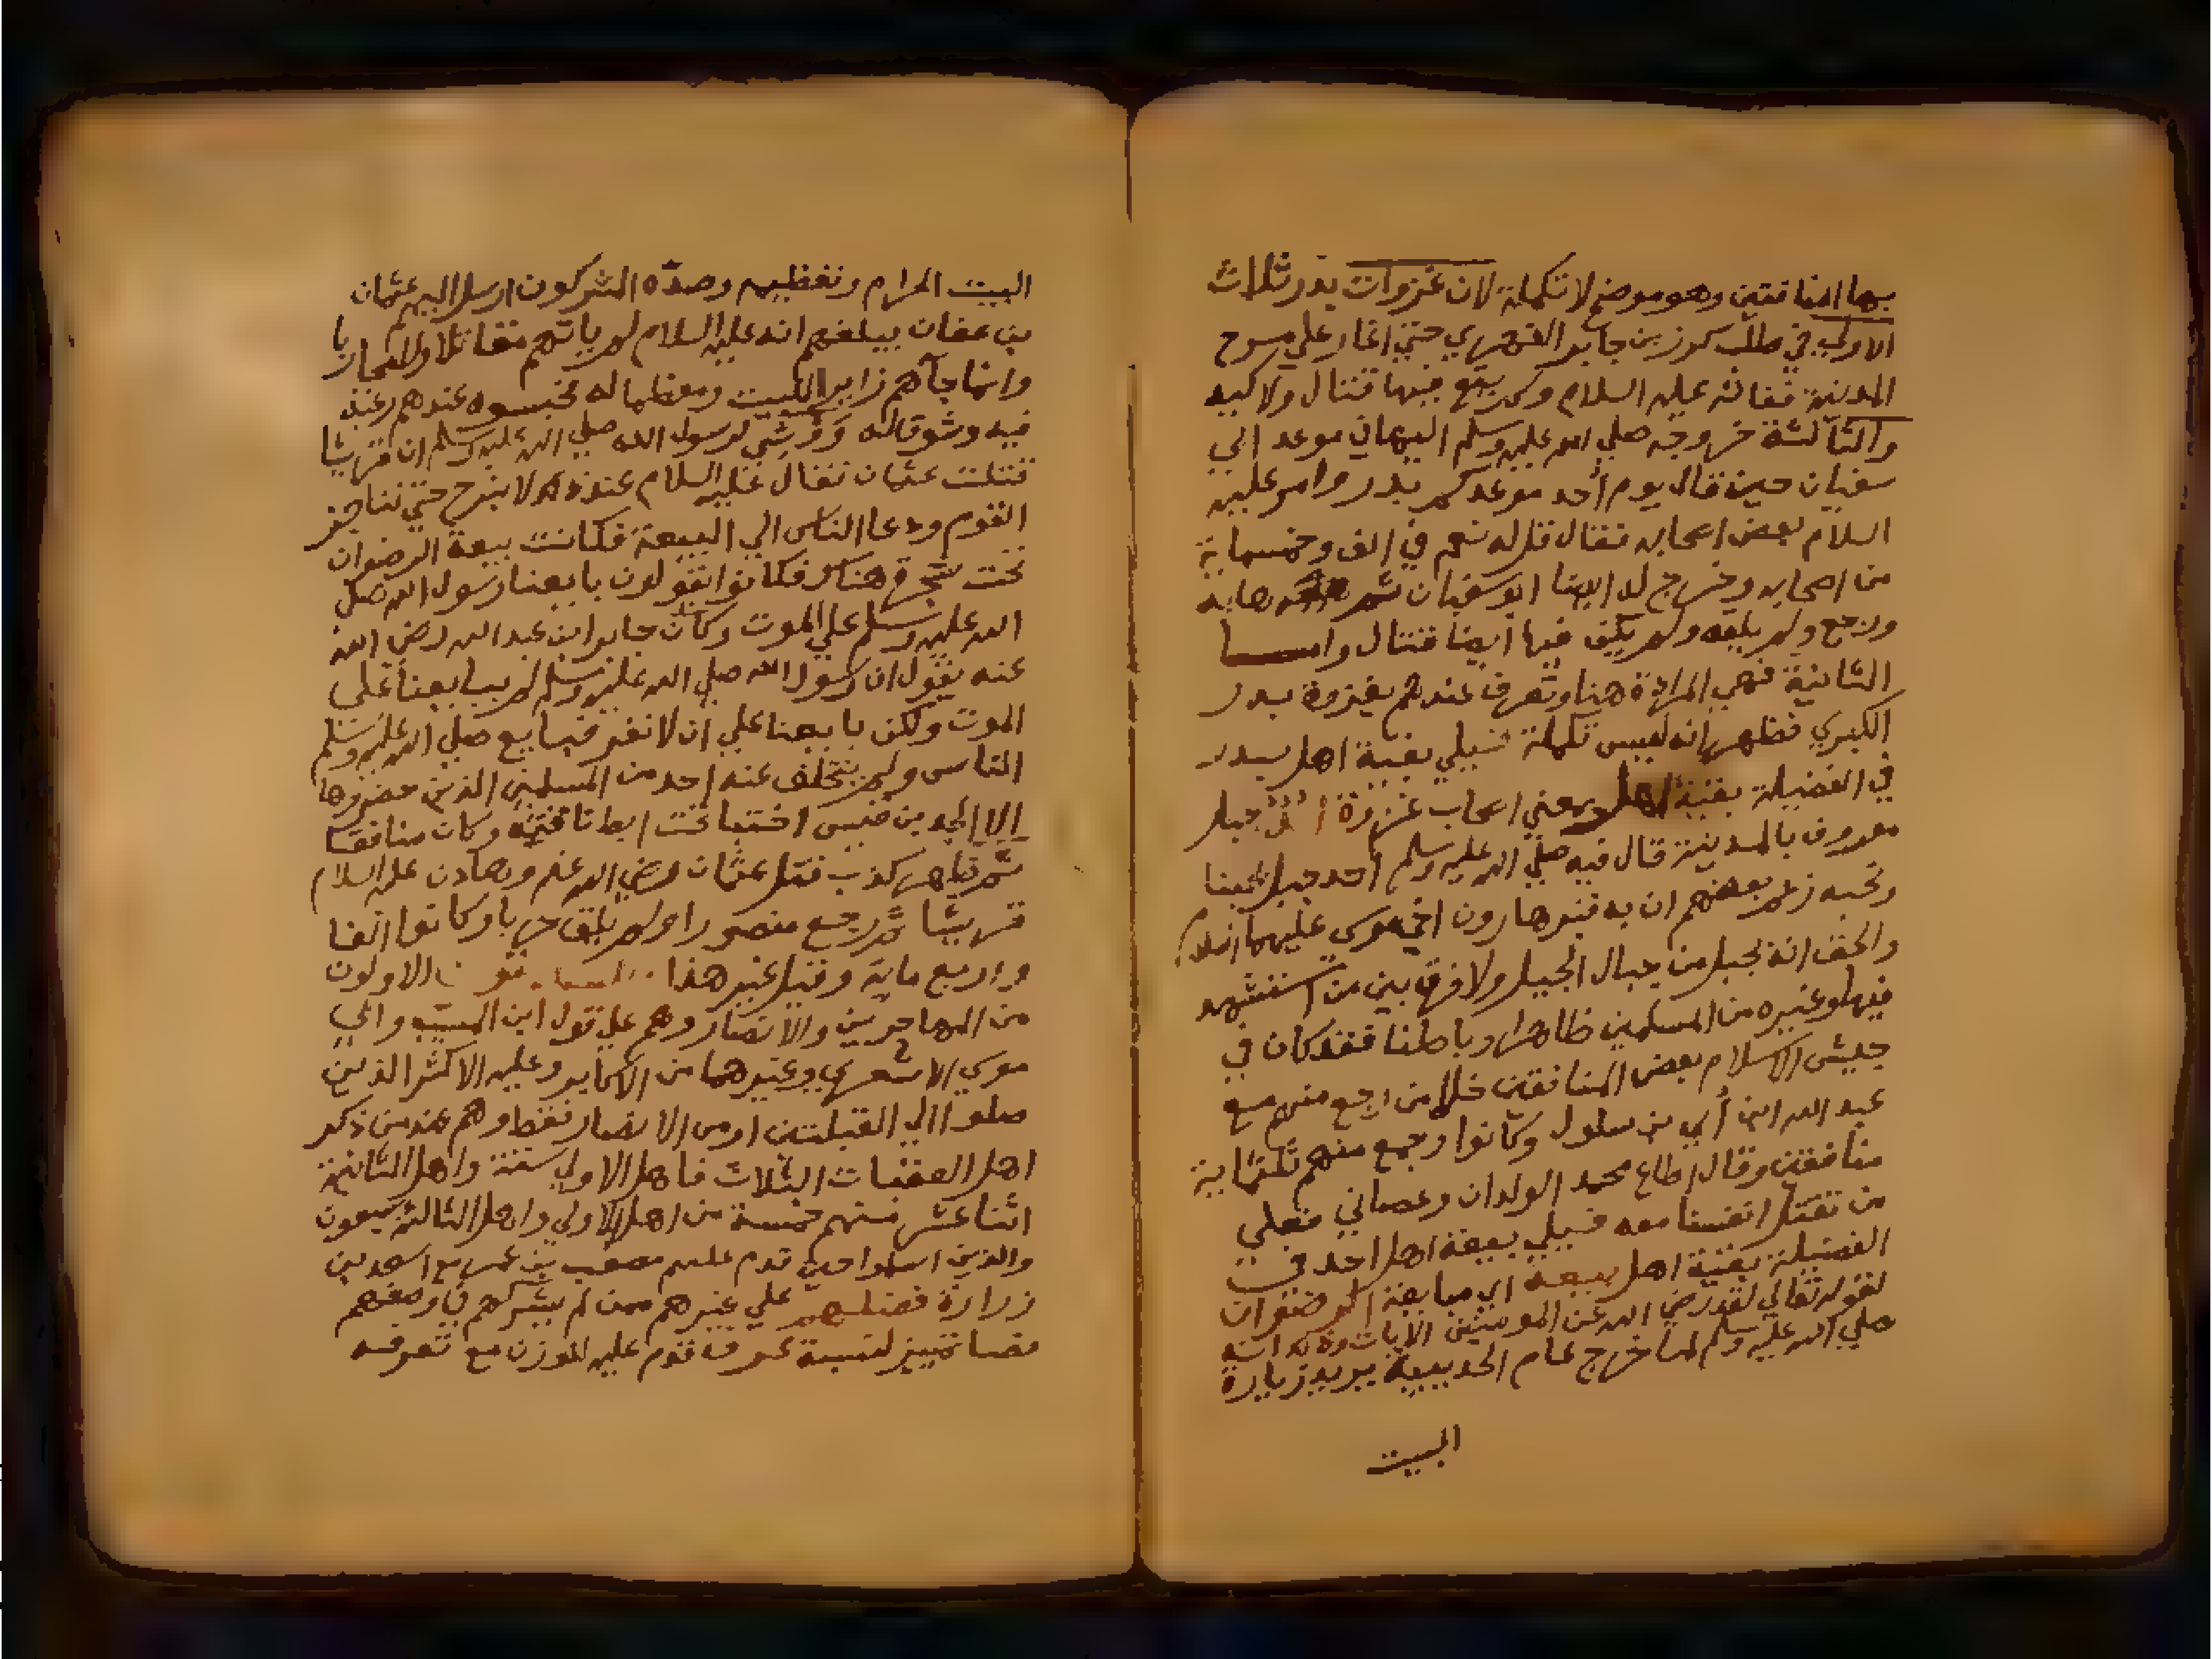 بها المنافقين وهو موضع لا تكملة لان غزوات بدر ثلاث
الاولي في طلب كرز بن جابر الفهري حتي اغار علي سرح
المدينة ففاته عليه السلام ولم يقع فيها قتال ولا كيد
والثالثة خروجه صلي الله عليه وسلم اليها في موعد ابي
سفيان حين قال يوم أحد موعدكم بدر وامر عليه
السلام بعض اصحابه فقال قل له نعم في الف وخمسماية
من اصحابه وخرج لها ايضا ابو سفيان ثم هابه
ورجع ولم يلقه ولم يكن فيها أيضا قتال واما
الثانية فهي المرادة هنا وتعرف عندهم بغزوة بدر
الكبري فظهر أنه ليس تكملة فيلي بقية اهل بدر
في الفضيلة بقية أهل يعني اصحاب غزوة جبل
معروف بالمدينة قال فيه صلي الله عليه وسلم أحد جبل يحبنا
ونحبه زعم بعضهم ان به قبر هارون اخي موسي عليهما السلام
والحق انه لجبل من جبال الجبل ولا فرق بين من استشهد
فيها وغيره من المسلمين ظاهرا وباطنا فقد كان في
جيش الاسلام بعض المنافقين خلا من رجع منهم مع
عبد الله ابن أبي بن سلول وكانوا رجع منهم ثلثماية
منافقين وقال اطاع محمد الولدان وعصاني فعلي
من تقتل انفسنا معه فيلي بقية اهل احد في
الفضيلة بقية اهل بيعة اي مبايعة الرضوان
لقوله تعالي لقد رضي الله عن المومنين الايات وذلك انه
صلي الله عليه وسلم لما خرج عام الحديبية يريد زيارة
البيت
البيت الحرام وتعظيمه وصده المشركون ارسل اليهم عثمان
بن عفان يبلغهم انه عليه السلام لم ياتهم مقاتلا ولا محاربا
وانما جآهم زايرا للبيت ومعظما له فحبسوه عندهم رغبة
فيه وشوقا له وفشي لرسول الله صلي الله عليه وسلم ان قريشا
قتلت عثمان فقال عليه السلام عند ذلك لا نبرح حتي نناجز
القوم ودعا الناس الي البيعة فكانت بيعة الرضوان
تحت شجرة هناك فكانوا يقولون بايعنا رسول الله صلي
الله عليه وسلم علي الموت وكان جابر ابن عبد الله رضي الله
عنه يقول ان رسول الله صلي الله عليه وسلم لم يبايعنا علي
الموت ولكن بايعنا علي ان لا نفر فبايع صلي الله عليه وسلم
الناس ولم يتخلف عنه احد من المسلمين الذين حضروها
الا الجد بن قيس اختبا تحت ابط ناقته وكان منافقا
ثم ظهر كذب قتل عثمان رضي الله عنه وهادن عليه السلام
قريشا ثم رجع منصورا ولم يلق حربا وكانوا الفا
واربع ماية وقيل غير هذا الاولون
من المهاجرين والانصار وهم علي قول ابن المسيب وابي
موسي الاشعري وغيرهما من الاكابر وعليه الاكثر الذين
صلوا الي القبلتين اومن الانصار فقط وهم عند من ذكر
اهل العقبات الثلاث فاهل الاولي ستة واهل الثانية
اثنا عشر منهم خمسة من اهل الاولي واهل الثالثة سبعون
والذين اسلموا حين قدم عليهم مصعب بن عمير مع اسعد بن
زرارة فضلهم علي غيرهم ممن لم يشركهم في وصفهم
نصا تمييز لنسبة عرف قدم عليه للوزن مع تعرفه